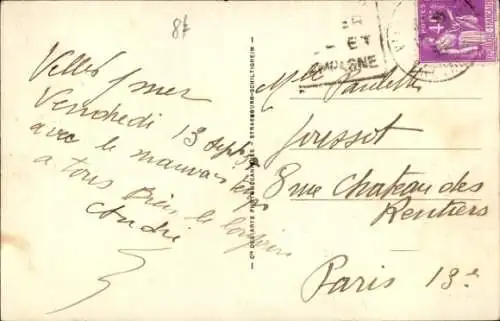 8f
Velles s/mer
Vendredi 13 Sept
avec le mauvais temps
a tous Bien le bonjour
André
Cie DES ARTS PHOTOMÉCANIQUES - STRASBOURG-SCHILTIGHEIM
ET
POSTES
40
Mlle Paulette
Joussot
8 rue Chateau des
Rentiers
Paris 13e